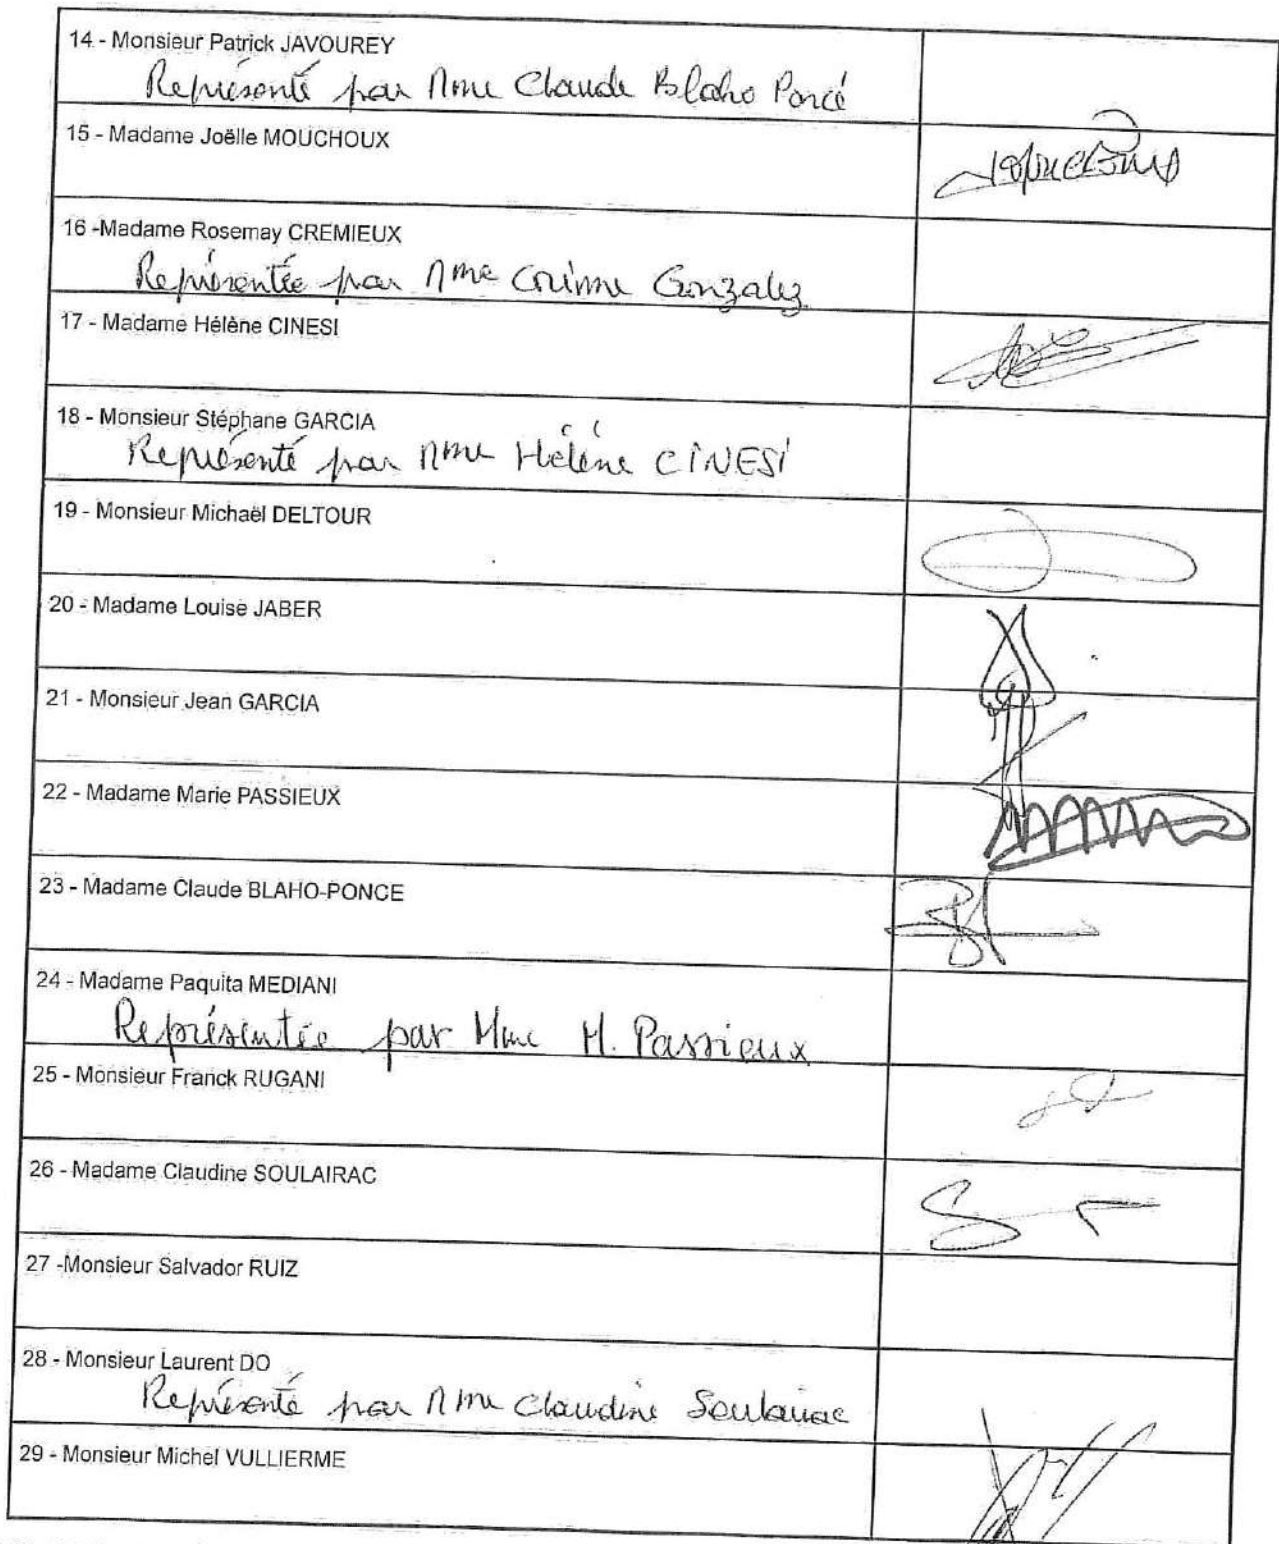 14 - Monsieur Patrick JAVOUREY
Représenté par Mme Claude Blaho Poncé
15 - Madame Joëlle MOUCHOUX
16 -Madame Rosemay CREMIEUX
Représentée par Mme Corinne Gonzalez
17 - Madame Hélène CINESI
18 - Monsieur Stéphane GARCIA
Représenté par Mme Hélène CINESI
19 - Monsieur Michaël DELTOUR
20 - Madame Louise JABER
21 - Monsieur Jean GARCIA
22 - Madame Marie PASSIEUX
23 - Madame Claude BLAHO-PONCE
24 - Madame Paquita MEDIANI
Représentée par Mme M. Passieux
25 - Monsieur Franck RUGANI
26 - Madame Claudine SOULAIRAC
27 -Monsieur Salvador RUIZ
28 - Monsieur Laurent DO
Représenté par Mme Claudine Soulairac
29 - Monsieur Michel VULLIERME